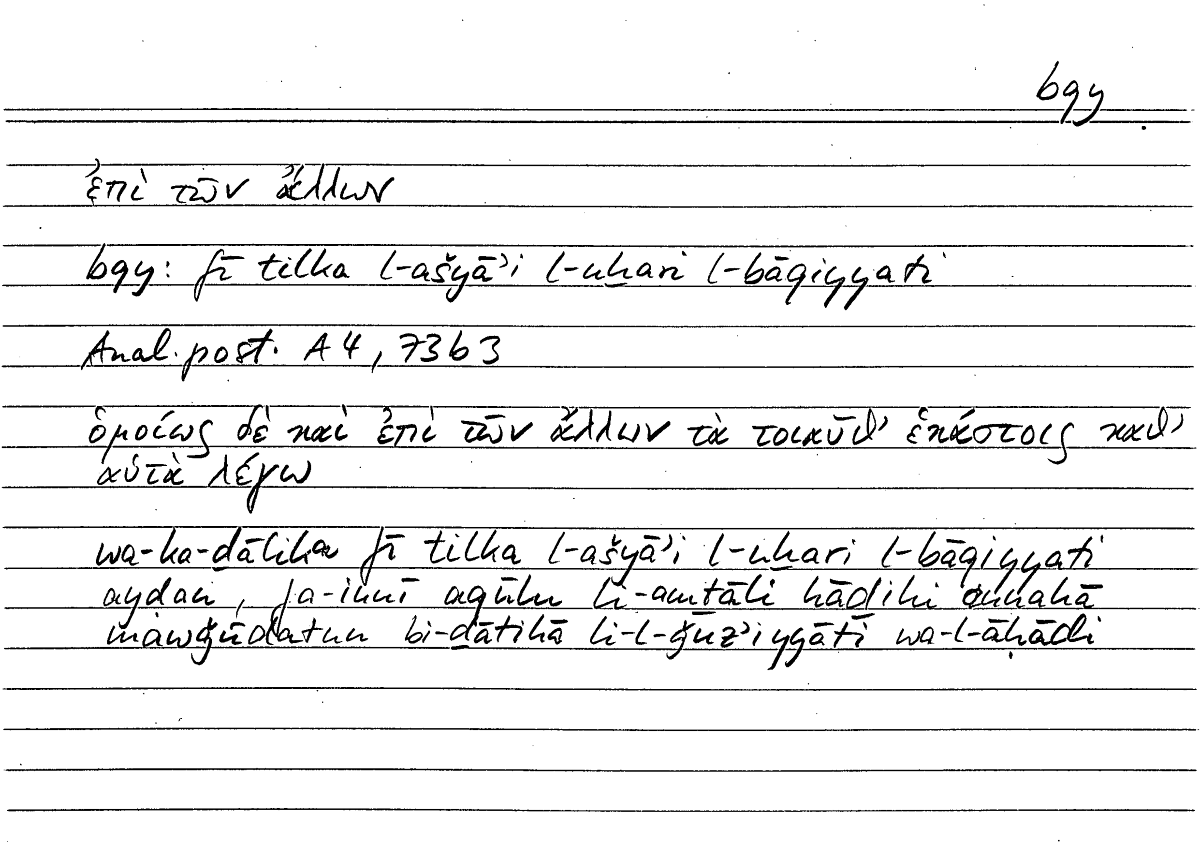 bqy
ἐπὶ τῶν ἄλλων
bqy: fī tilka l-ašyāʾi l-uḫari l-bāqiyyati
Anal. post. A 4, 73 b 3
ὁμοίως δὲ καὶ ἐπὶ τῶν ἄλλων τὰ τοιαῦθ’ ἑκάστοις καθ’
αὑτὰ λέγω
wa-ka-ḏālika fī tilka l-ašyāʾi l-uḫari l-bāqiyyati
ayḍan, fa-innī aqūlu li-amṯāli hāḏihi annahā
mawǧūdatun bi-ḏātihā li-l-ǧuzʾiyyāti wa-l-āḥādi